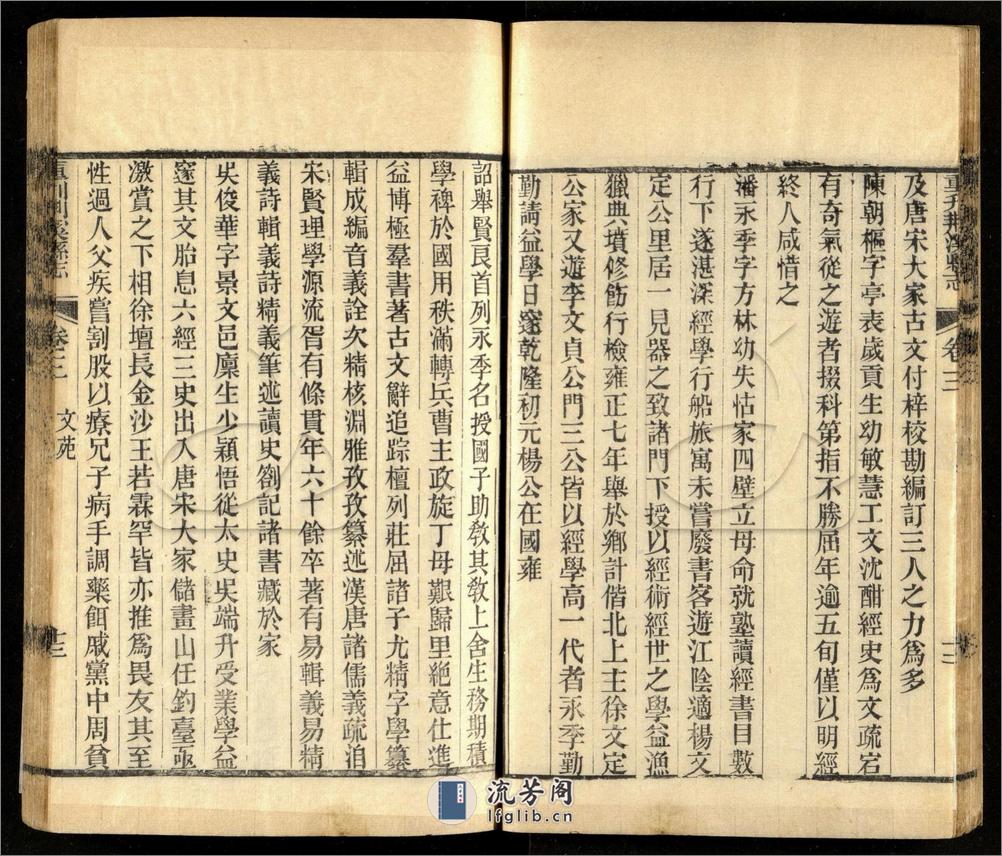 及唐宋大家古文付梓校勘編訂三人之力爲多
陳朝樞字亭表歲貢生幼敏慧工文沈酣經史爲文疏宕
有奇氣從之遊者掇科第指不勝屈年逾五旬僅以明經
終人咸惜之
潘永季字方林幼失怙家四壁立母命就塾讀經書目數
行下遂湛深經學行船旅寓未嘗廢書客遊江陰適楊文
定公里居一見器之致諸門下授以經術經世之學益漁
獵典墳修飭行檢雍正七年舉於鄉計偕北上主徐文定
公家又遊李文貞公門三公皆以經學高一代者永季勤
勤請益學日邃乾隆初元楊公在國雍
重刊荆溪縣志
卷三
十二
詔舉賢良首列永季名授國子助教其教上舍生務期積
學裨於國用秩滿轉兵曹主政旋丁母艱歸里絕意仕進
益博極羣書著古文辭追踪檀列莊屈諸子尤精字學纂
輯成編音義詮次精核淵雅孜孜纂述漢唐諸儒義疏洎
宋賢理學源流胥有條貫年六十餘卒著有易輯義易精
義詩輯義詩精義筆述讀史劄記諸書藏於家
吳俊華字景文邑廩生少穎悟從太史吳端升受業學益
邃其文胎息六經三史出入唐宋大家儲畫山任釣臺亟
激賞之下相徐壇長金沙王若霖罕皆亦推爲畏友其至
性過人父疾嘗割股以療兄子病手調藥餌戚黨中周貧
重刊荆溪縣志
卷三
文苑
十三
流芳阁
lfglib.cn